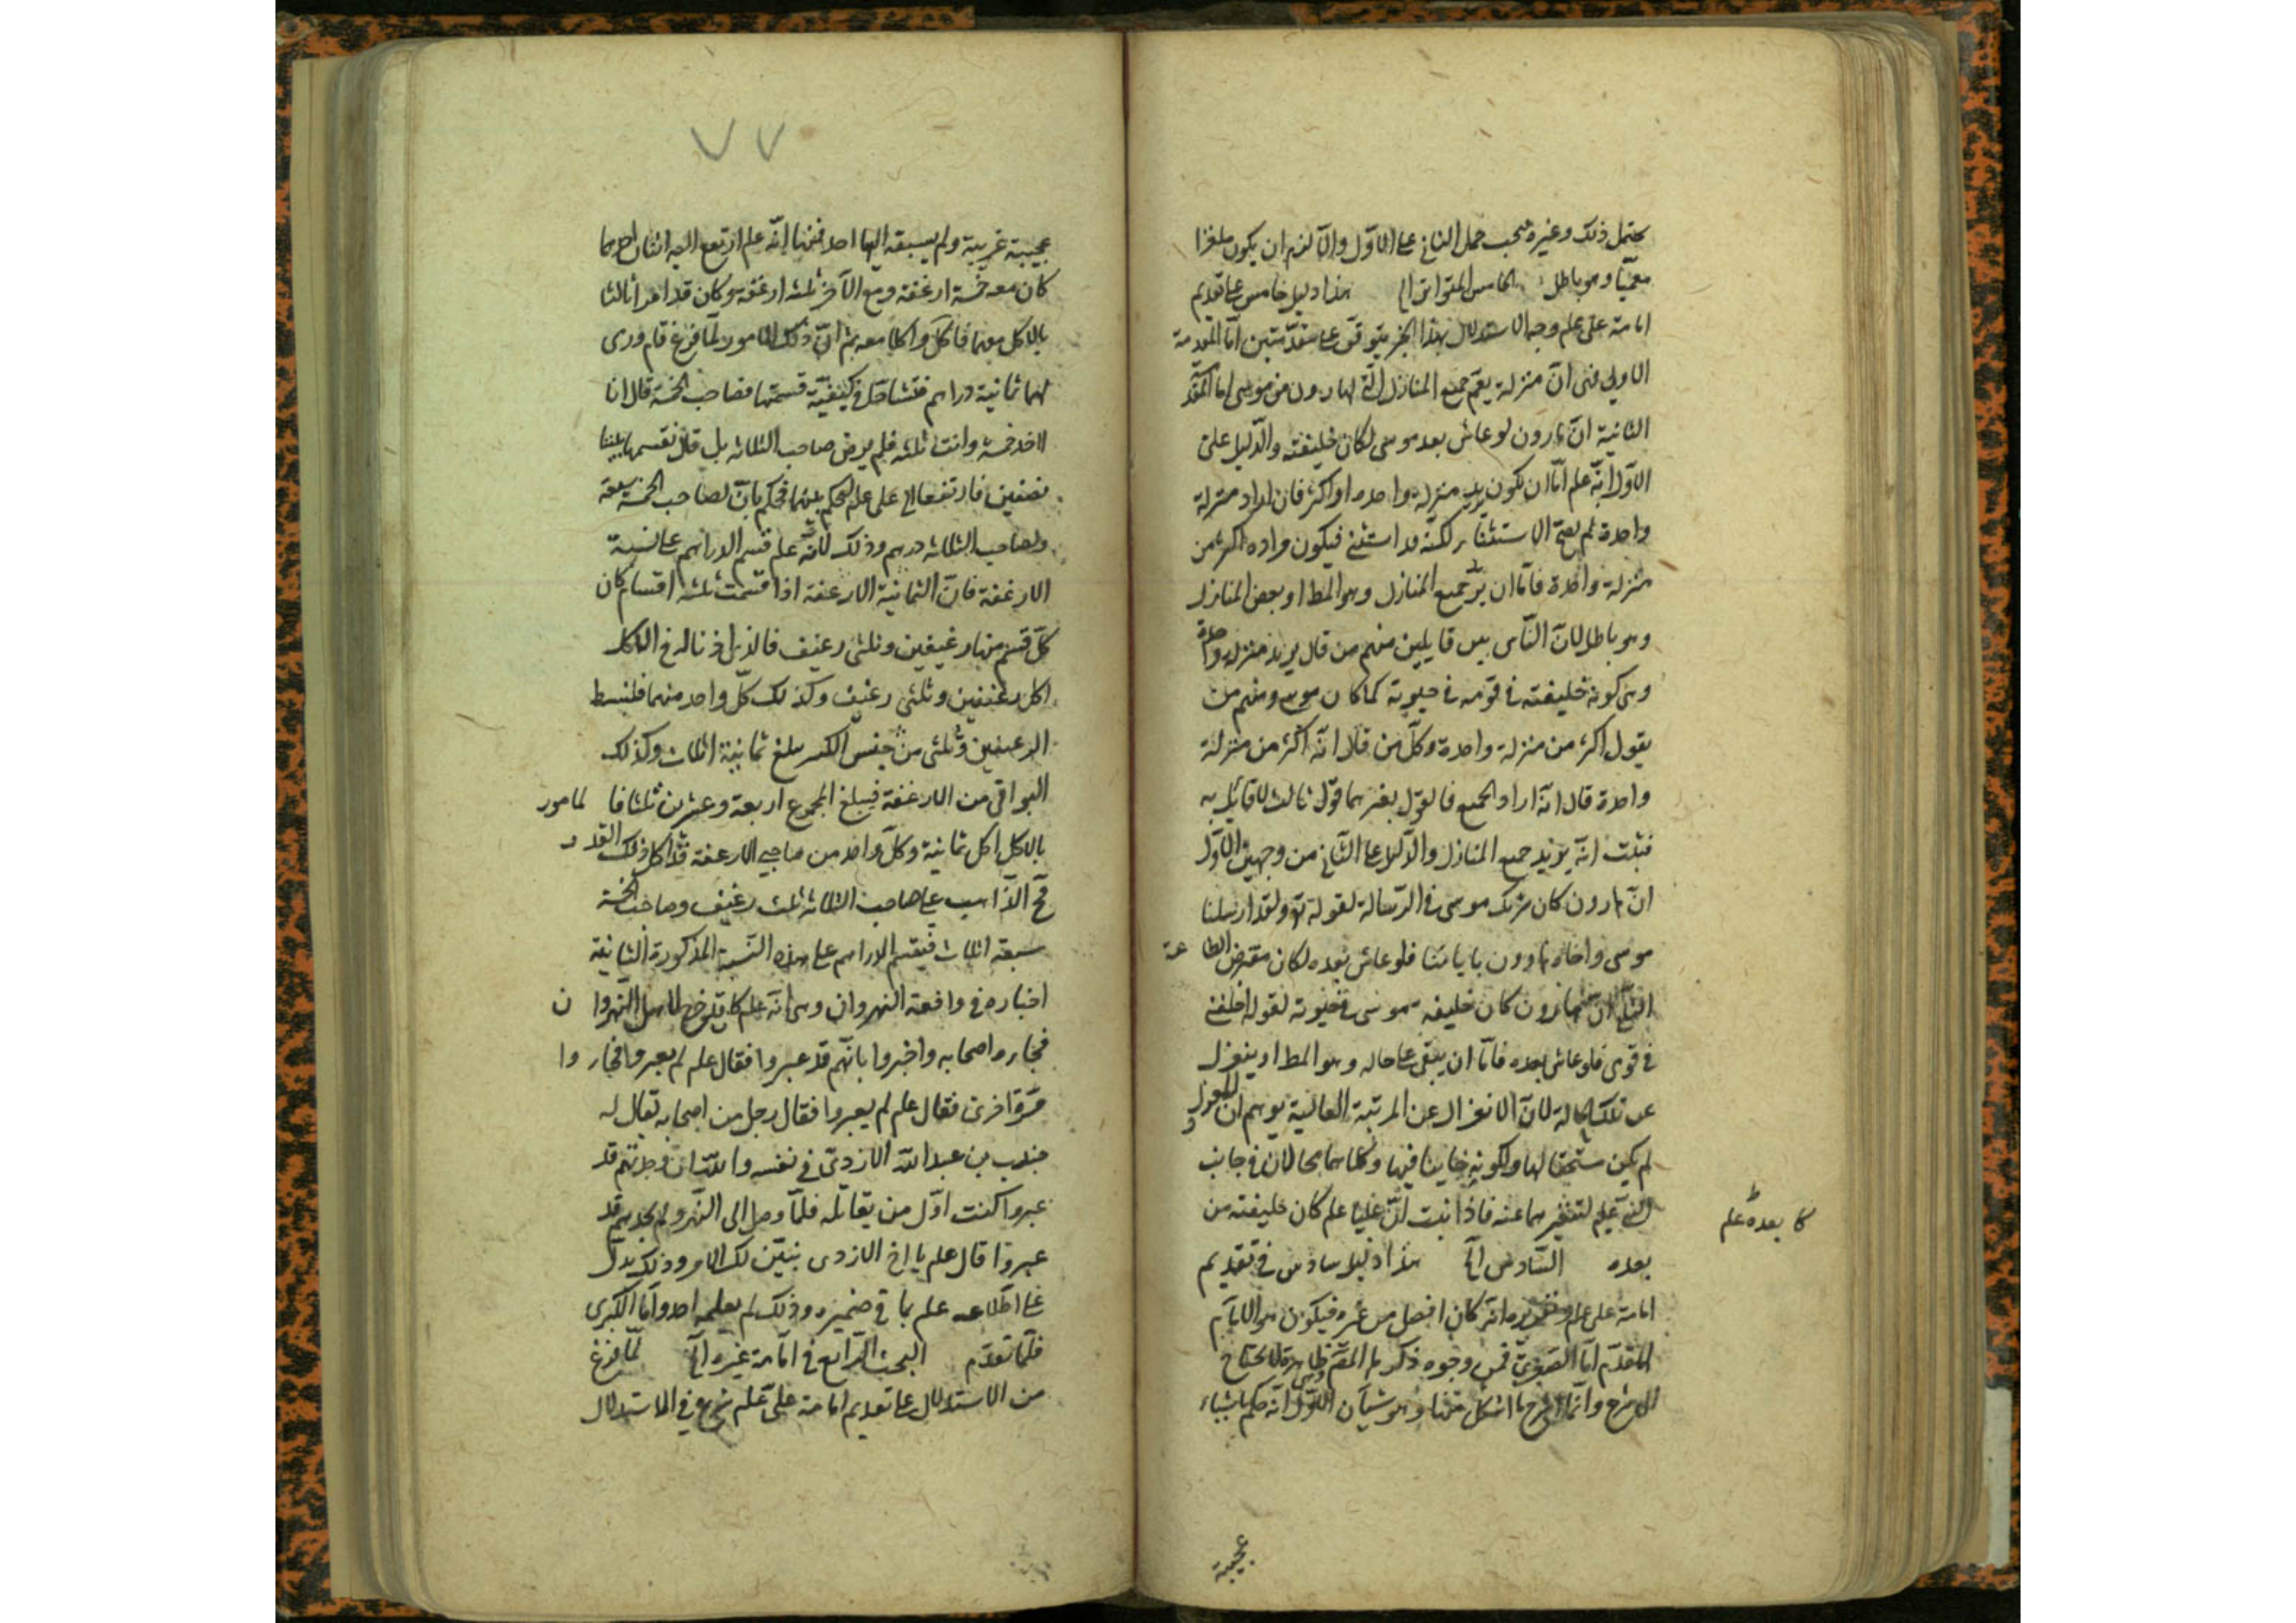 يحتمل ذلك وغيره فيجب حمل الثاني على الاول والا لزم ان يكون ملغزا
معميا وهو باطل الخامس المتواتر الخ هذا دليل خامس على تقديم
امامة على علم وجه الاستدلال بهذا الخبر يتوقف على مقدمتين اما المقدمة
الاولى فهى ان منزلة يعم جميع المنازل التى لهارون من موسى اما المقدمة
الثانية ان هارون لو عاش بعد موسى لكان خليفته والدليل على
الاول انه علم اما ان يكون يريد منزلة واحدة او اكثر فان اراد منزلة
واحدة لم يصح الاستثناء لكنه قد استثنى فيكون مراده اكثر من
منزلة واحدة فاما ان يريد جميع المنازل وهو المط او بعض المنازل
وهو باطل لان الناس بين قايلين منهم من قال يريد منزلة واحدة
وهى كونه خليفته فى قومه فى حيوته كما كان موسى ومنهم من
يقول اكثر من منزلة واحدة وكل من قال انه اكثر من منزلة
واحدة قال انه اراد الجميع فالقول بغيرهما قول ثالث لا قائل به
فثبت انه يريد جميع المنازل والدليل على الثانى من وجهين الاول
ان هارون كان شريك موسى فى الرسالة لقوله تع ولقد ارسلنا
موسى واخاه هارون باياتنا فلو عاش بعده لكان مفترض الطاعة
الثانى ان هارون كان خليفة موسى فى حيوته لقوله اخلفنى
فى قومى فلو عاش بعده فاما ان يبقى على حاله وهو المط او ينعزل
عن تلك الحالة لان الانعزال عن المرتبة العالية يوهم ان المعزول
لم يكن مستحقا لها ولكونه خاينا فيها وكلاهما محالان فى جانب
النبى علم لتنفيرهما عنه فاذا ثبت ان عليا علم كان خليفته من
كا بعده علم
بعده السادس الخ هذا دليل سادس فى تقديم
امامة على علم وتقريره انه كان افضل من غيره فيكون هو الامام
المقدم اما الصغرى فمن وجوه ذكرها المص وهى ظاهرة لا يحتاج
الى شرح وانما نشرح ما اشكل منها وهو شيآن الاول انه حكم باشياء
عجيبة
٧٧
عجيبة غريبة ولم يسبقه اليها احد فمنها انه علم ارتفع اليه اثنان احدهما
كان معه خمسة ارغفة ومع الآخر ثلثة ارغفة وكان قد امرا ثالثا
بالاكل معهما فاكل واكلا معه ثم ان ذلك المامور لما فرغ قام ورمى
لهما ثمانية دراهم فتشاحا فى كيفية قسمتها فصاحب الخمسة قال انا
آخذ خمسة وانت ثلثة فلم يرض صاحب الثلاثة بل قال نقسمها بيننا
نصفين فارتفعا الى على علم ليحكم بينهما فحكم بان لصاحب الخمسة سبعة
ولصاحب الثلاثة درهم وذلك لانه علم قسم الدراهم على نسبة
الارغفة فان الثمانية الارغفة اذا قسمت ثلثة اقسام كان
كل قسم منها رغيفين وثلثى رغيف فالذى اذنا له فى الاكل
اكل رغيفين وثلثى رغيف وكذلك كل واحد منهما فلنبسط
الرغيفين وثلثى من جنس الكسر يبلغ ثمانية اثلاث وكذلك
البواقى من الارغفة فيبلغ المجموع اربعة وعشرين ثلثا فالمامور
بالاكل اكل ثمانية وكل واحد من صاحبى الارغفة قد اكل ذلك القدر
فح الذاهب على صاحب الثلاثة ثلث رغيف وصاحب الخمسة
سبعة اثلاث فيقسم الدراهم على هذه النسبة المذكورة الثانية
اخباره فى واقعة النهروان وهى انه علم كما خرج لاهل النهروان
فجاءه اصحابه واخبروا بانهم قد عبروا فقال علم لم يعبروا فجاروا
مرة اخرى فقال علم لم يعبروا فقال رجل من اصحابه يقال له
جندب بن عبد الله الازدى فى نفسه والله ان وجدتهم قد
عبروا كنت اول من يقاتله فلما وصل الى النهر ولم يجدهم قد
عبروا قال علم يا اخ الازدى نبين لك الامر وذلك يدل
على اطلاعه علم بما فى ضميره وذلك لم يعلمه احد واما الكبرى
فلما تقدم البحث الرابع فى امامة غيره الخ لما فرغ
من الاستدلال على تقديم امامة على علم شرع فى الاستدلال